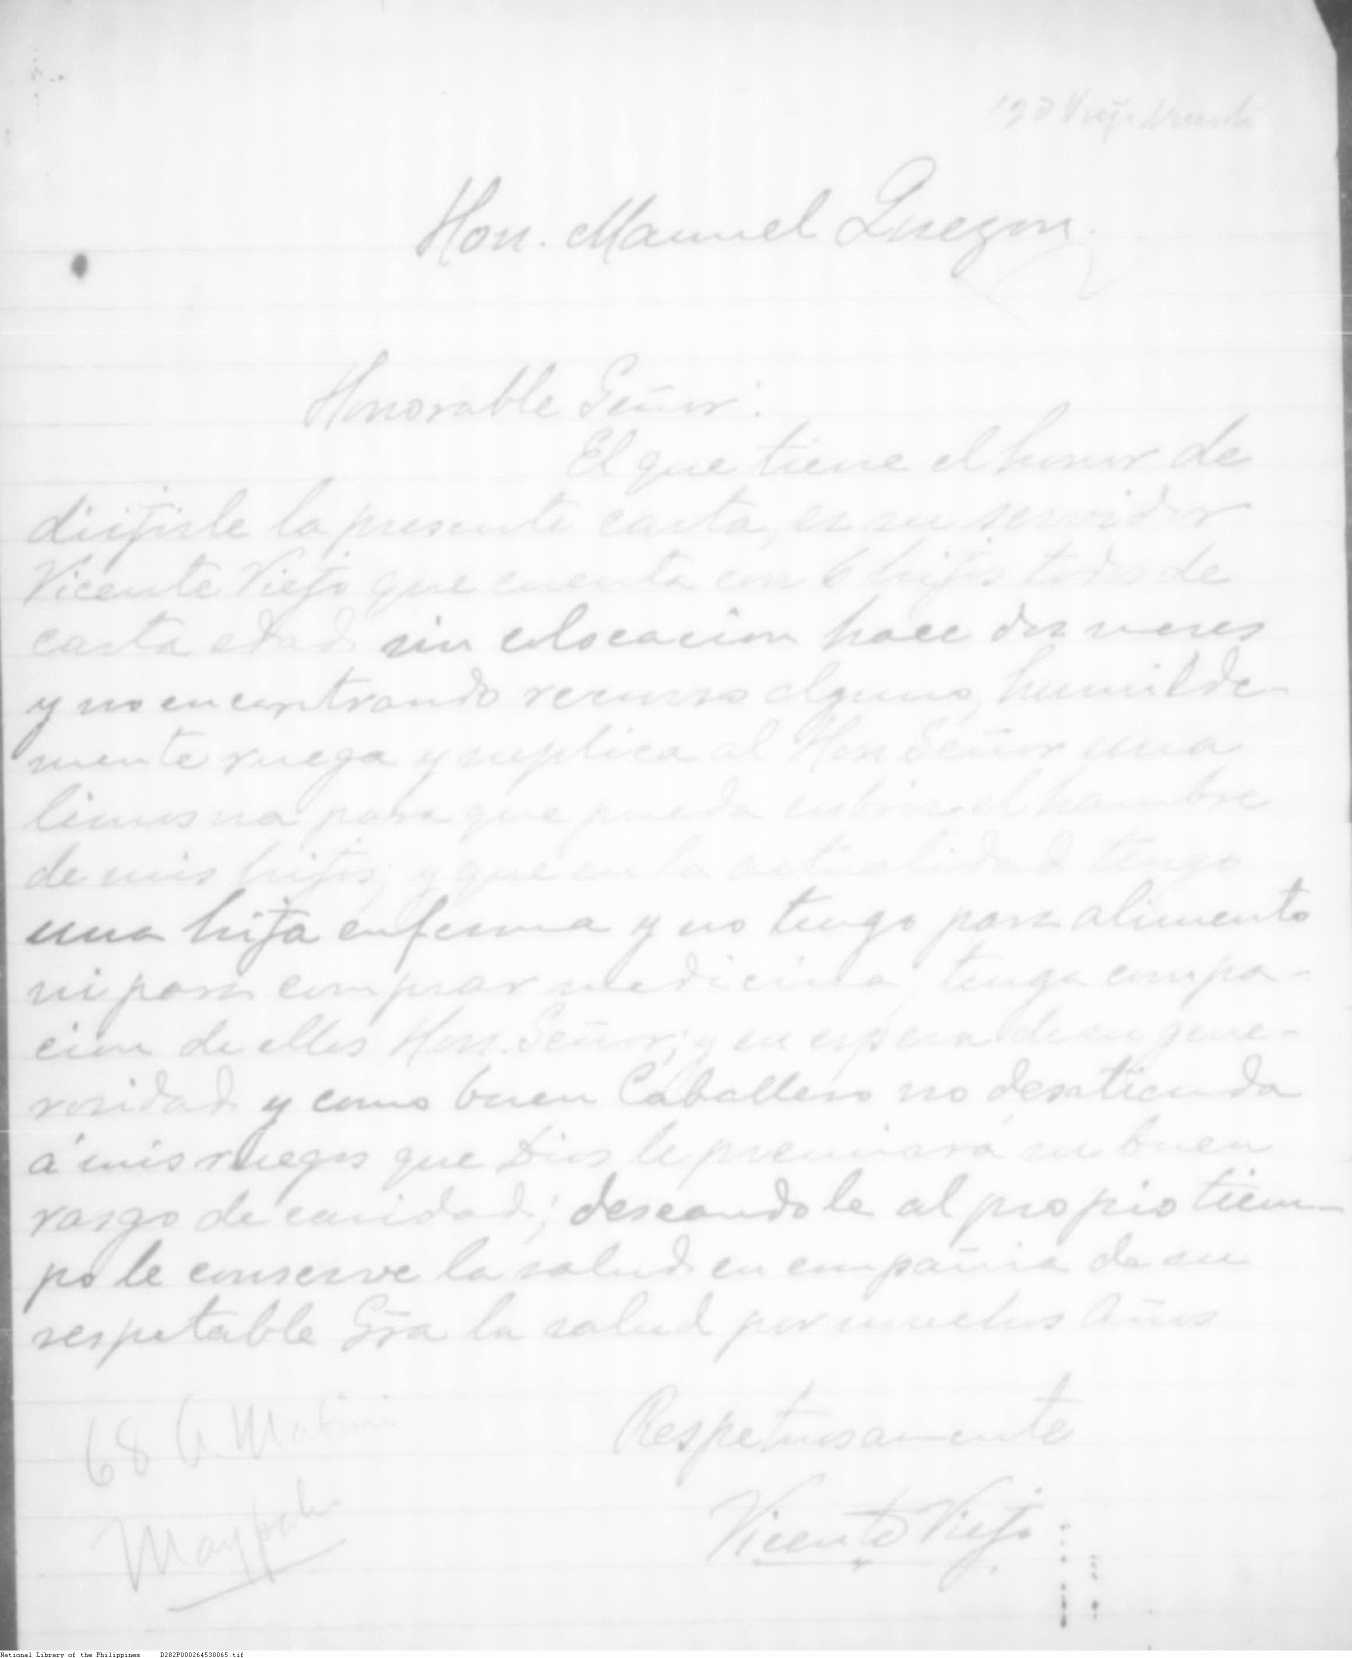 Viejo Vicente
Hon. Manuel Quezon.
Honorable Señor:
El que tiene el honor de
dirijirle la presente carta, es su servidor
Vicente Viejo que cuenta con 6 hijos todos de
corta edad sin colocacion hace dos meses
y no encontrando recurso alguno, humilde-
mente ruega y suplica al Hon. Señor una
limosna para que pueda cubrir el hambre
de mis hijos, y que en la actualidad tengo
una hija enferma y no tengo para alimento
ni para comprar medicina, tenga compa-
cion de ellos Hon. Señor; y en espera de su gene-
rosidad y como buen Caballero no desatienda
á mis ruegos que Dios le premiará su buen
rasgo de caridad; deseandole al propio tiem-
po le conserve la salud en compañia de su
respetable Sra la salud por muchos Años
Respetuosamente
68 A. Mabini
Maypajo
Vicente Viejo.
National Library of the Philippines D282P000264530065.tif